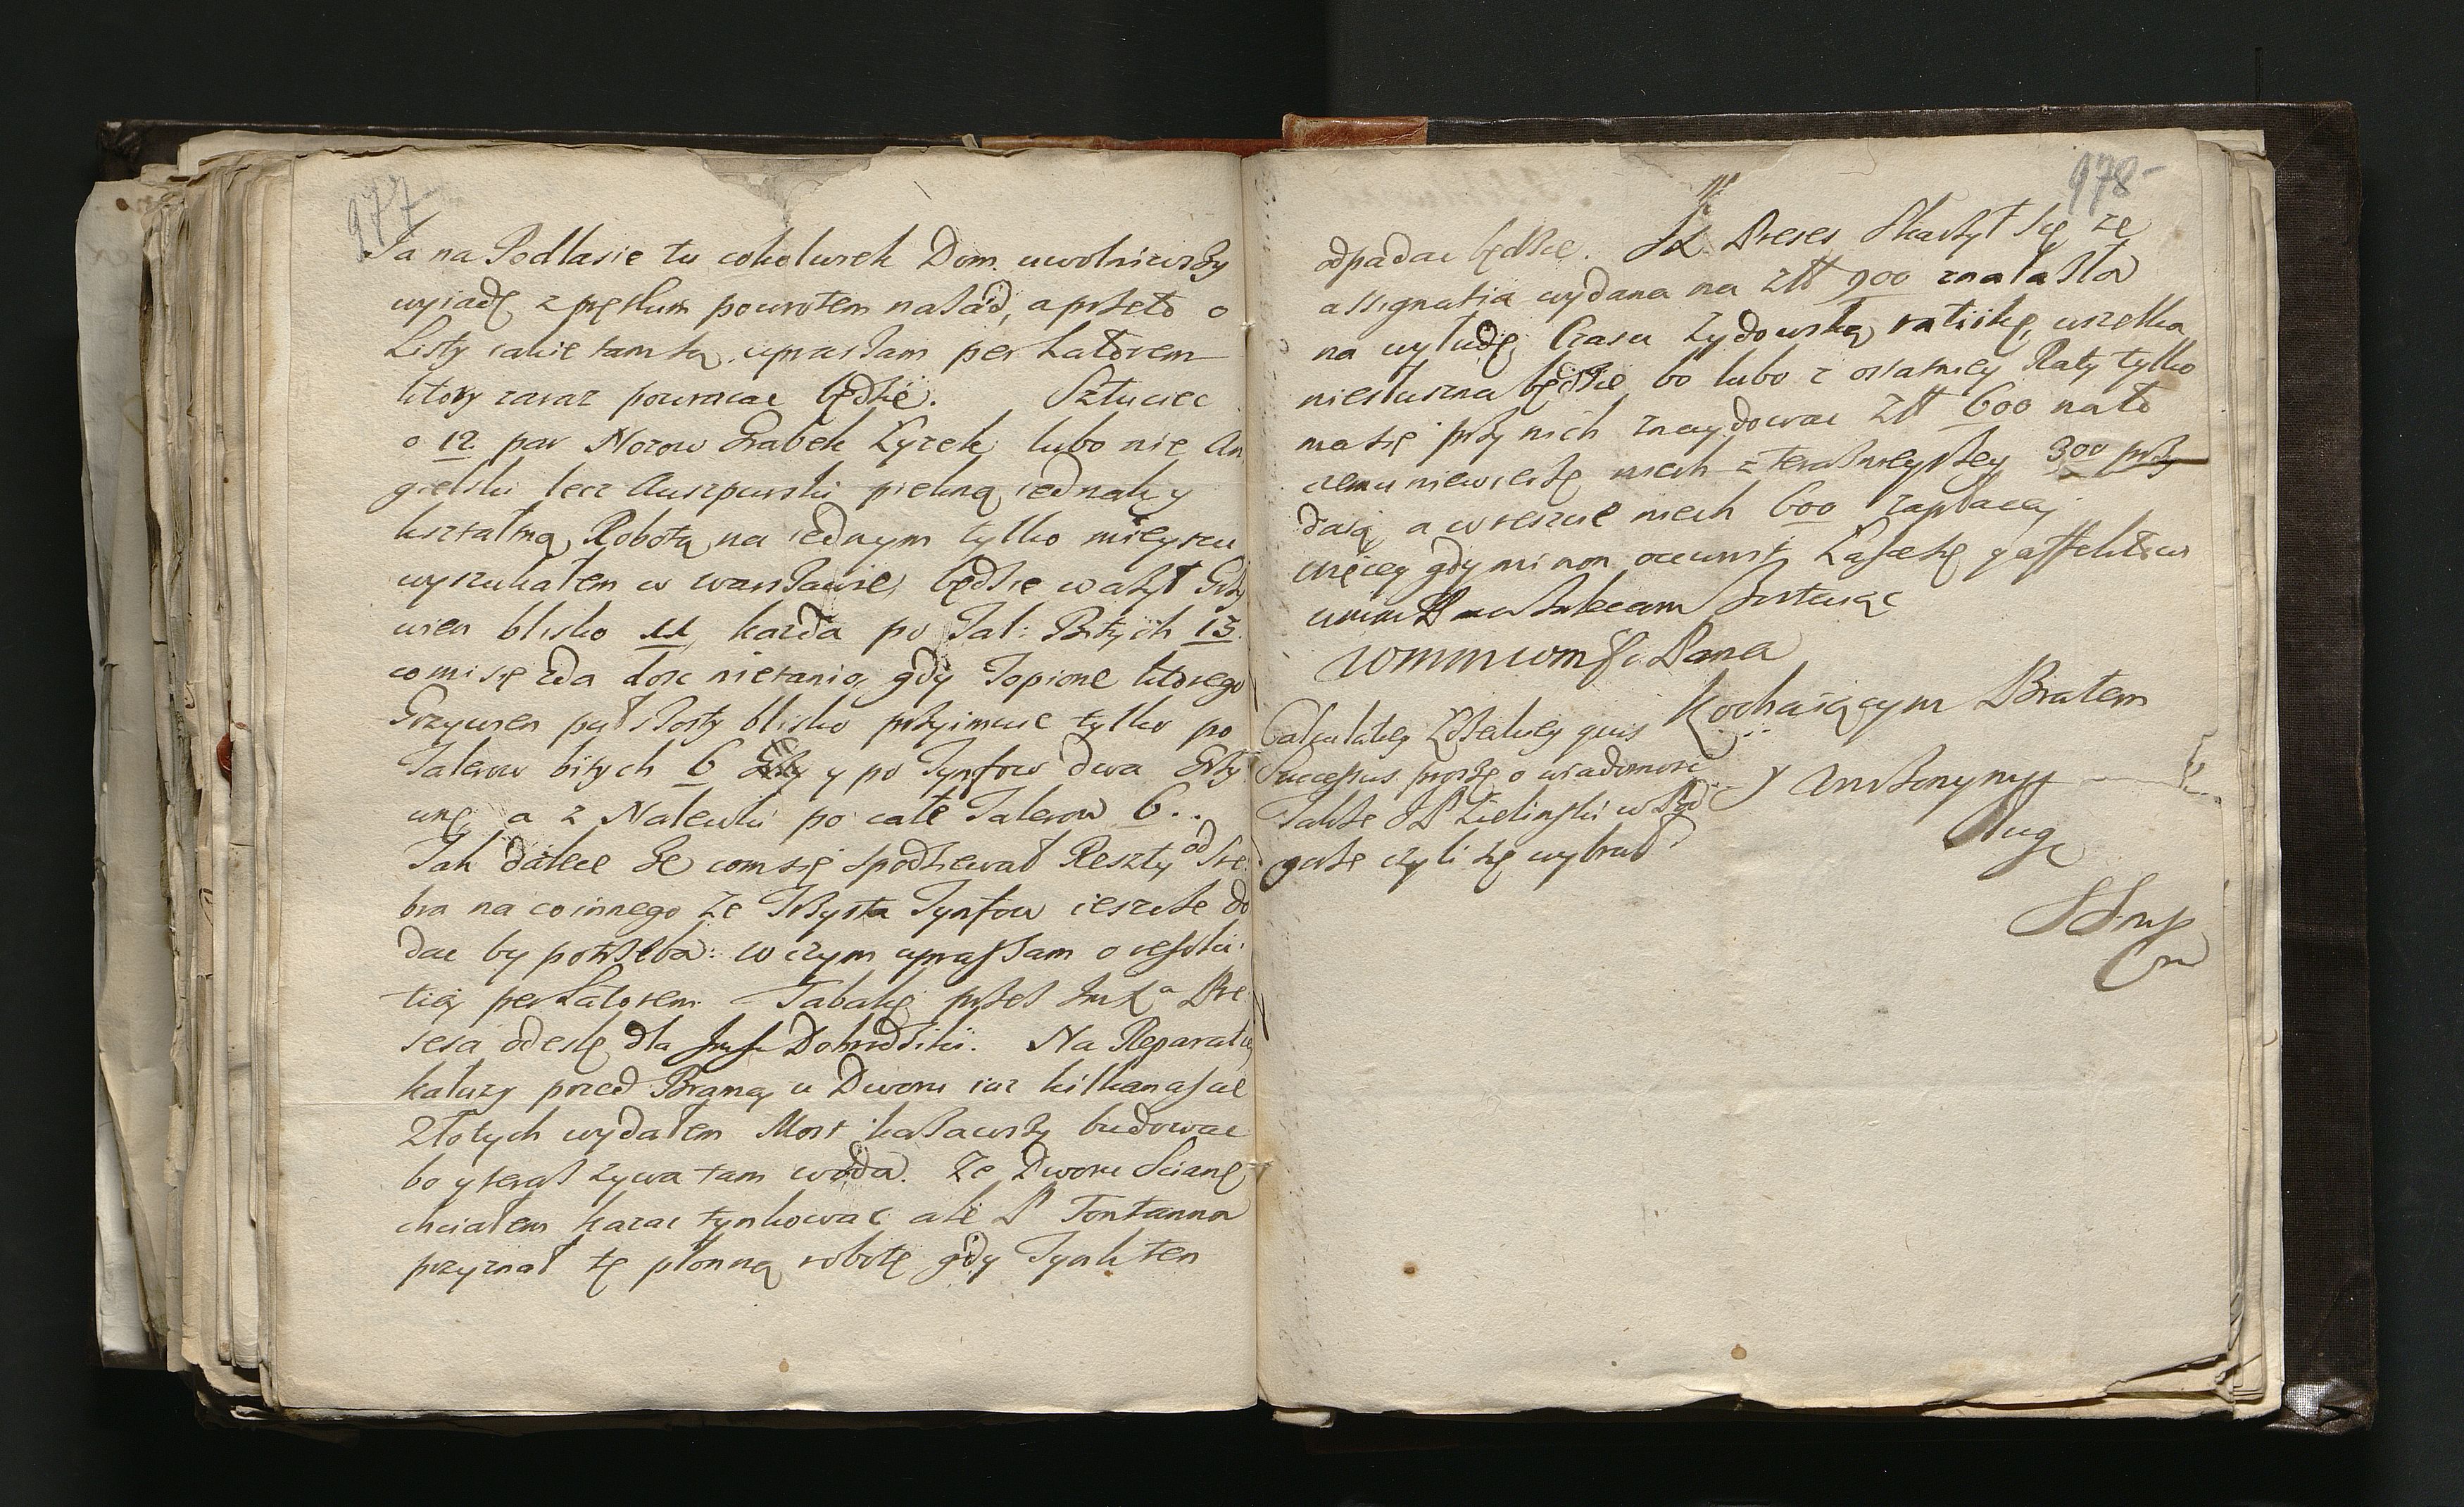 977
Ja na Podlasie tu cokolwiek Dom. uwolniwszy
wyiadę z prętkim powrotem nazad, a przeto o
Listy iakie tam są upraszam per Latorem
ktory zaraz powracac będzie. Sztuciec
o 12 par Nozow Grabek Łyzek lubo nie An
gielski lecz Auszpurski piekną iednak y
kształtną Robotą na iednym tylko mieyscu
wyszukałem w warszawie, będzie wazył Grzy
wien blisko 11, kazda po Tal: Bitych 13.
co mi się zda dosc nietanio, gdy Topione ktorego
Grzywien puł szosty blisko przyimuie tylko po
Talerow bitych 6 y po Tynfow dwa Grzy
wnę, a z Nalewki po całe Talerow 6..
Tak dalece ze com się spodziewał Reszty od Sre
bra na co innego ze Trzysta Tynfow ieszcze do
dac by potrzeba: w czym upraszam o resolu
tią per Latorem. Tabakę przez Pre
sesa odeslę dla Dobrodziki. Na Reparatią
kałuzy przed Bramą u Dworu iuz kilkanascie
Złotych wydałem Most kazawszy budowac
bo y teraz zywa tam woda. Ze Dworu Scianę
chciałem kazac tynkowac ale P Fontanna
przyznał tę płonną robotę gdy Tynk ten
978
odpadac będzie. Preses Skarzył się ze
assignatia wydana na złł 900 znalazła
na wyłudę Czasu zydowską ratiikę, wszelka
niesłuszna będzie bo lubo z ostatniey Raty tylko
ma się przy nich znaydowac złł 600 na to
czemu niewierzę niech z terazneyszey 300 przy
daią, a wreszcie niech 600 zapłacą
więcey gdy mi non occurrit Łascze y affektowi
zalecam zostaiąc
Pana
Kochaiącym Bratem
y unizonym
Sługą
quis
Successus proszę o wiadomosc
Takze P Zielinski w
goszcz czyli się wybrał